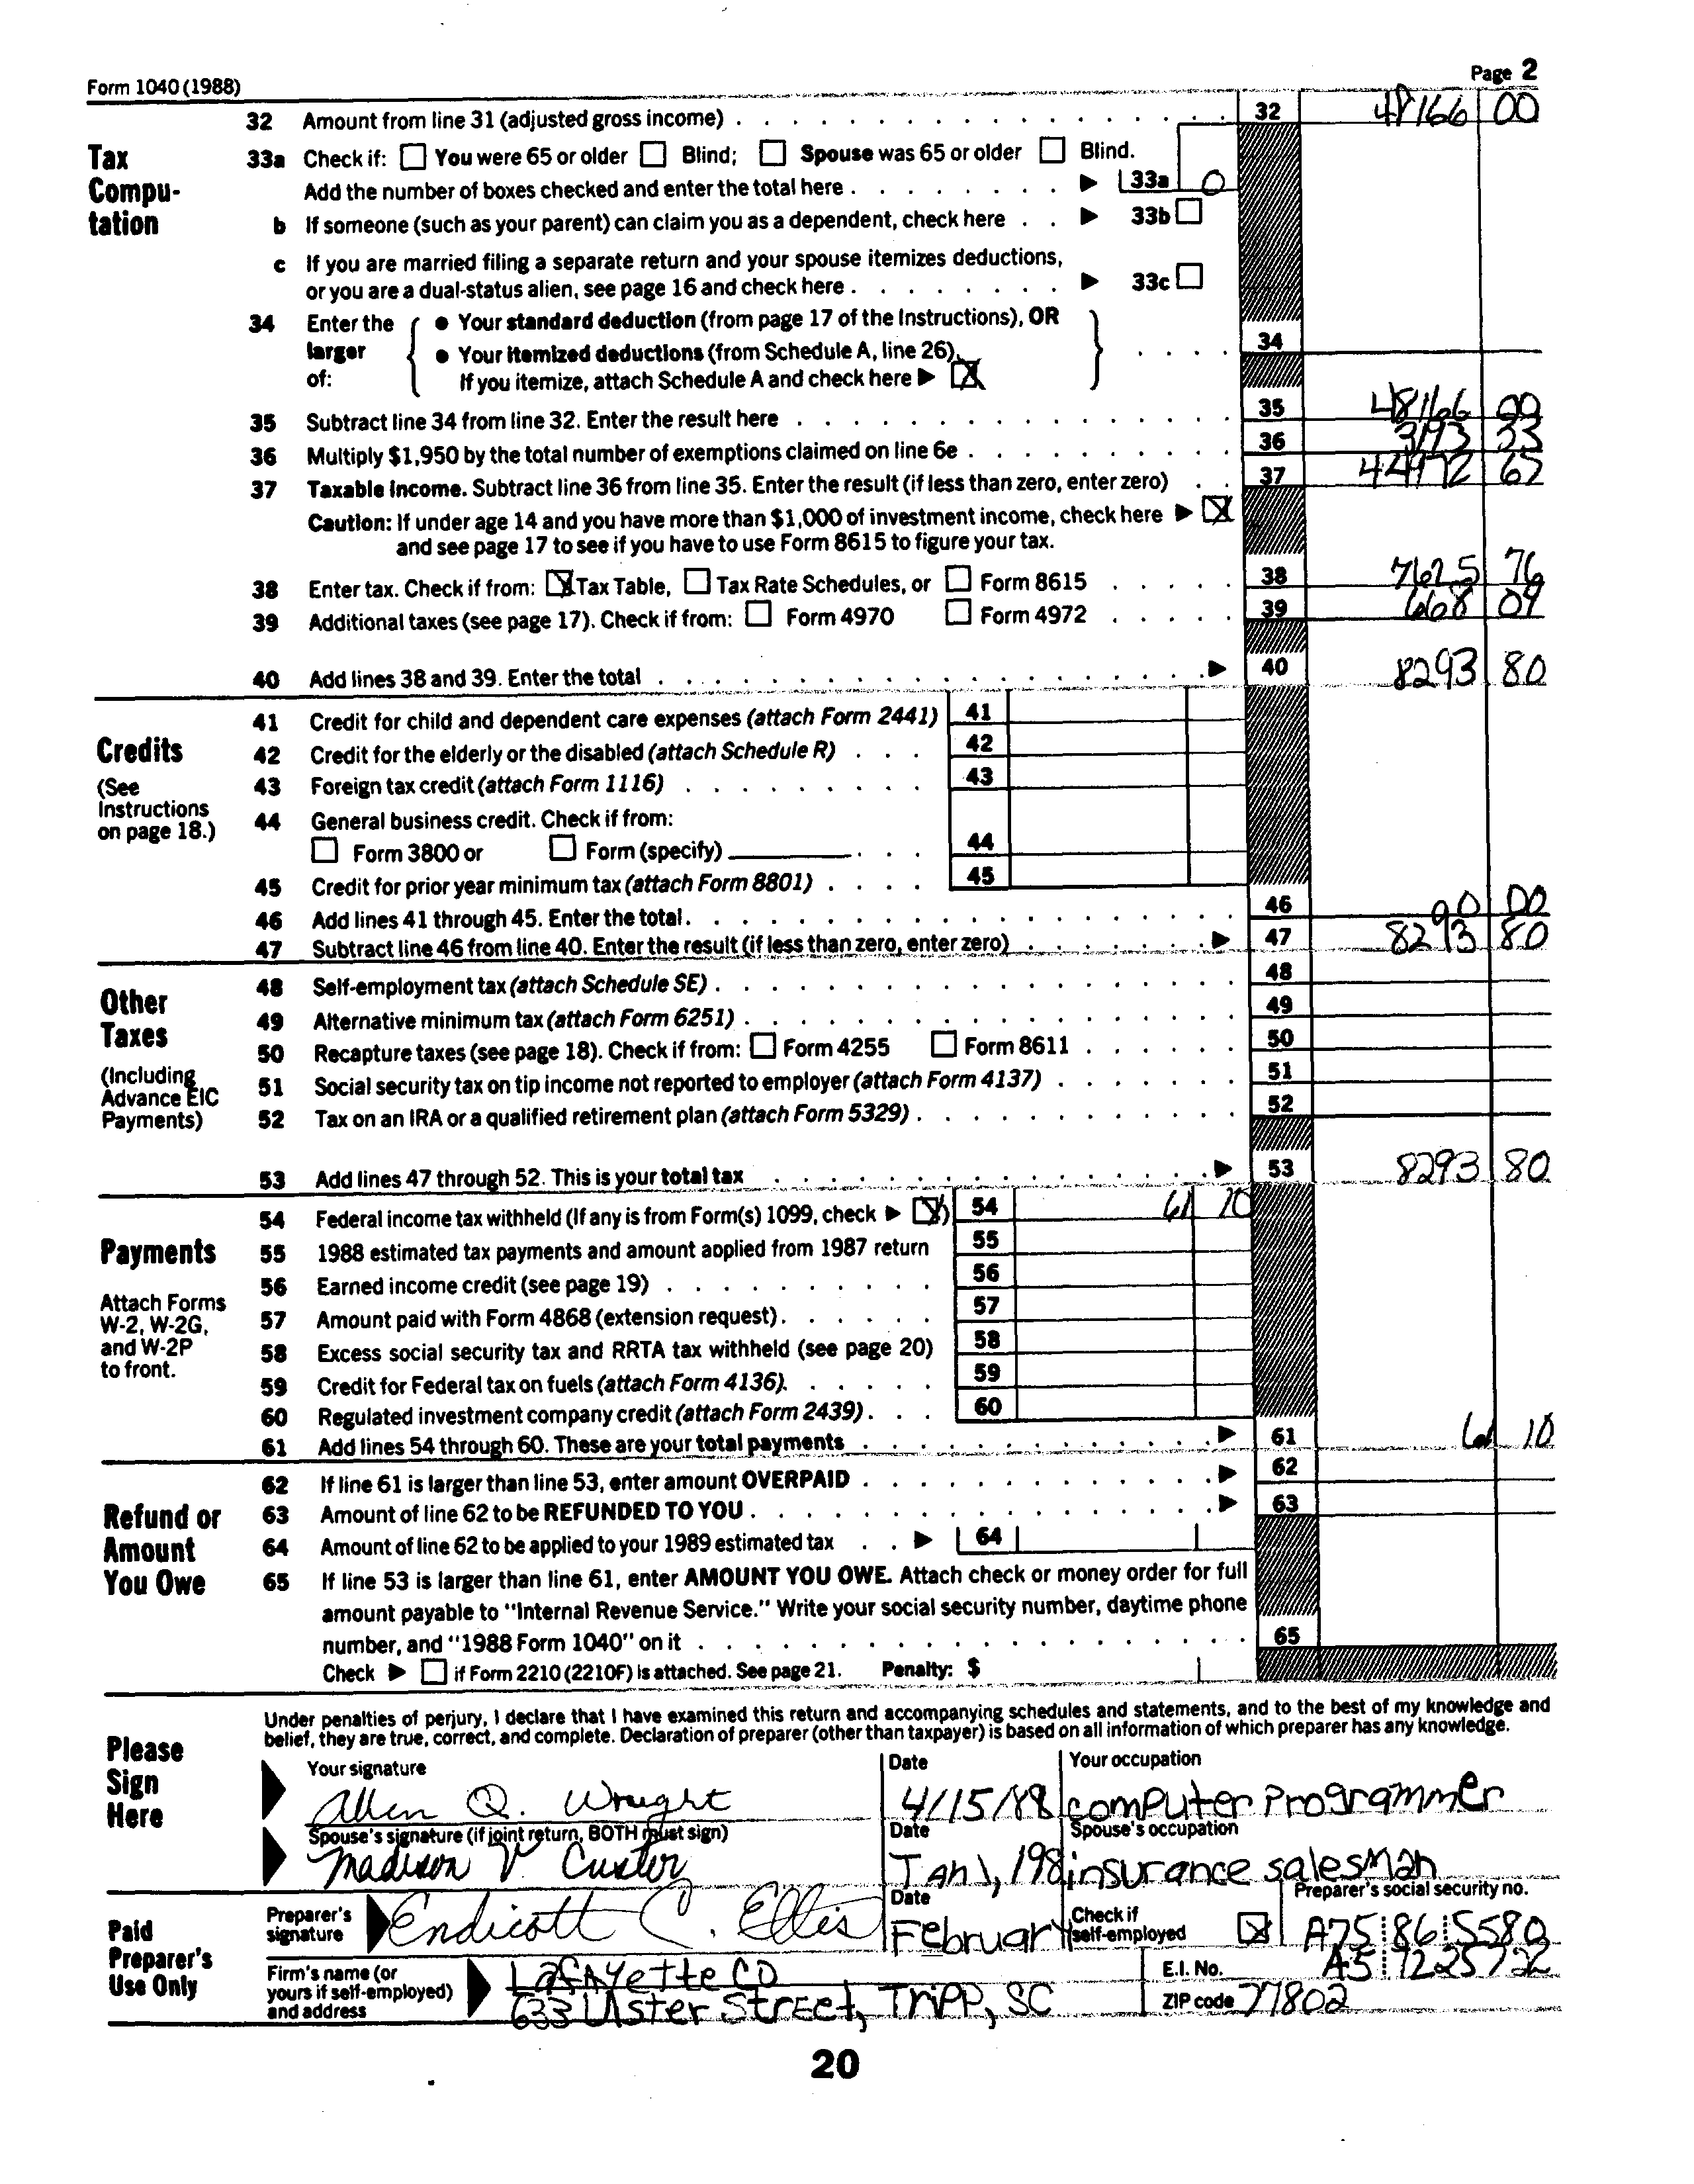 Form 1040 (1988) Page 2
Tax Computation
32 Amount from line 31 (adjusted gross income) 32 48166 00
33a Check if: You were 65 or older Blind; Spouse was 65 or older Blind.
Add the number of boxes checked and enter the total here 33a 0
b If someone (such as your parent) can claim you as a dependent, check here 33b
c If you are married filing a separate return and your spouse itemizes deductions,
or you are a dual-status alien, see page 16 and check here 33c
34 Enter the larger of:
• Your standard deduction (from page 17 of the Instructions), OR
• Your itemized deductions (from Schedule A, line 26). 34
If you itemize, attach Schedule A and check here ▶ X
35 Subtract line 34 from line 32. Enter the result here 35 48166 00
36 Multiply $1,950 by the total number of exemptions claimed on line 6e 36 3193 33
37 Taxable income. Subtract line 36 from line 35. Enter the result (if less than zero, enter zero) 37 44972 67
Caution: If under age 14 and you have more than $1,000 of investment income, check here ▶ X
and see page 17 to see if you have to use Form 8615 to figure your tax.
38 Enter tax. Check if from: X Tax Table, Tax Rate Schedules, or Form 8615 38 7625 76
39 Additional taxes (see page 17). Check if from: Form 4970 Form 4972 39 668 04
40 Add lines 38 and 39. Enter the total 40 8293 80
Credits
(See Instructions on page 18.)
41 Credit for child and dependent care expenses (attach Form 2441) 41
42 Credit for the elderly or the disabled (attach Schedule R) 42
43 Foreign tax credit (attach Form 1116) 43
44 General business credit. Check if from:
Form 3800 or Form (specify) 44
45 Credit for prior year minimum tax (attach Form 8801) 45
46 Add lines 41 through 45. Enter the total 46 00 00
47 Subtract line 46 from line 40. Enter the result (if less than zero, enter zero) 47 8293 80
Other Taxes
(Including Advance EIC Payments)
48 Self-employment tax (attach Schedule SE) 48
49 Alternative minimum tax (attach Form 6251) 49
50 Recapture taxes (see page 18). Check if from: Form 4255 Form 8611 50
51 Social security tax on tip income not reported to employer (attach Form 4137) 51
52 Tax on an IRA or a qualified retirement plan (attach Form 5329) 52
53 Add lines 47 through 52. This is your total tax 53 8293 80
Payments
Attach Forms W-2, W-2G, and W-2P to front.
54 Federal income tax withheld (If any is from Form(s) 1099, check ▶ X) 54 61 10
55 1988 estimated tax payments and amount applied from 1987 return 55
56 Earned income credit (see page 19) 56
57 Amount paid with Form 4868 (extension request) 57
58 Excess social security tax and RRTA tax withheld (see page 20) 58
59 Credit for Federal tax on fuels (attach Form 4136) 59
60 Regulated investment company credit (attach Form 2439) 60
61 Add lines 54 through 60. These are your total payments 61 61 10
Refund or Amount You Owe
62 If line 61 is larger than line 53, enter amount OVERPAID 62
63 Amount of line 62 to be REFUNDED TO YOU 63
64 Amount of line 62 to be applied to your 1989 estimated tax 64
65 If line 53 is larger than line 61, enter AMOUNT YOU OWE. Attach check or money order for full
amount payable to "Internal Revenue Service." Write your social security number, daytime phone
number, and "1988 Form 1040" on it 65
Check ▶ if Form 2210 (2210F) is attached. See page 21. Penalty: $
Please Sign Here
Under penalties of perjury, I declare that I have examined this return and accompanying schedules and statements, and to the best of my knowledge and
belief, they are true, correct, and complete. Declaration of preparer (other than taxpayer) is based on all information of which preparer has any knowledge.
Your signature Date Your occupation
Allen Q. Wright 4/15/88 computer Programmer
Spouse's signature (if joint return, BOTH must sign) Date Spouse's occupation
Madison V. Custer Jan 1, 198 insurance salesman
Paid Preparer's Use Only
Preparer's signature Date Check if self-employed X Preparer's social security no.
Endicott C. Ellis February A75 86 5580
Firm's name (or yours if self-employed) and address
Lafayette CO E.I. No. A5 7225722
633 Ulster Street, Tripp, SC ZIP code 77802
20